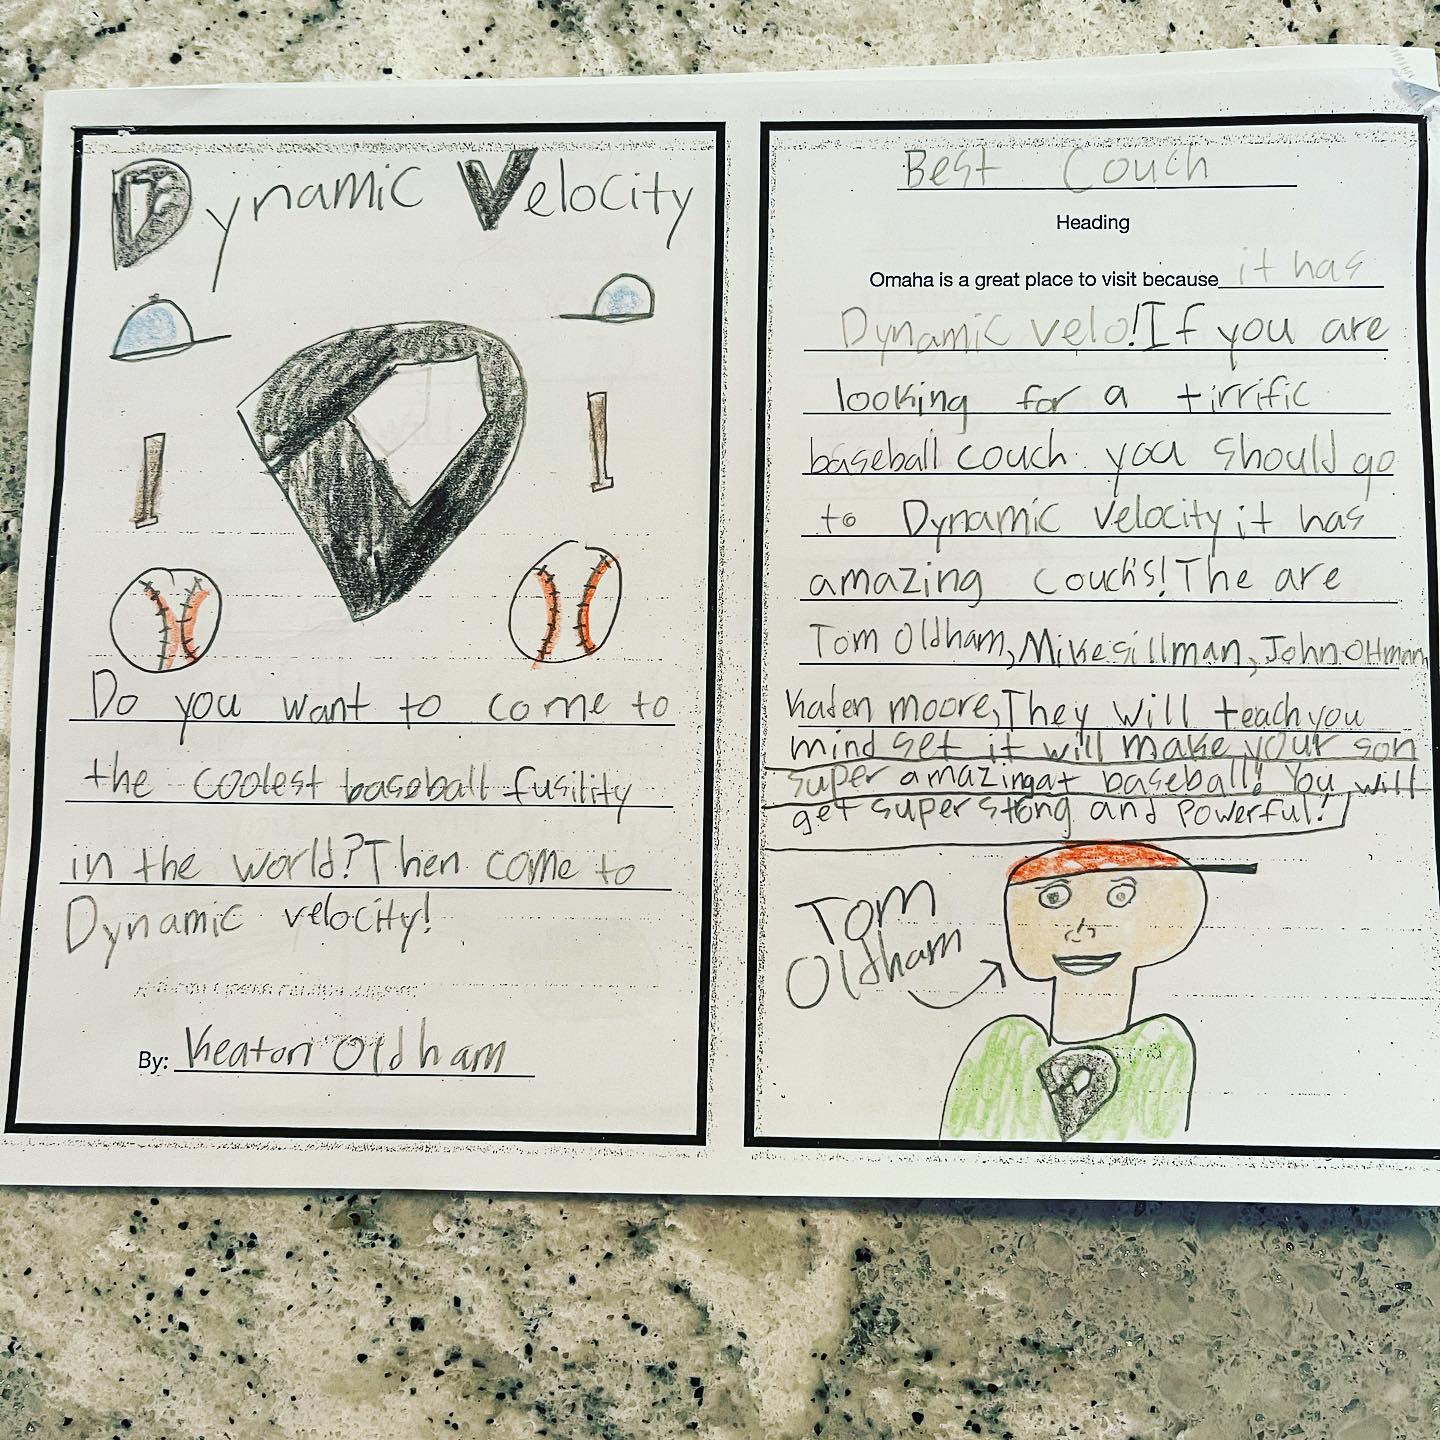 Dynamic Velocity
Do you want to come to
the coolest baseball fusility
in the world? Then come to
Dynamic velocity!
By: Keaton Oldham
Best Couch
Heading
Omaha is a great place to visit because it has
Dynamic velo! If you are
looking for a tirrific
baseball couch you should go
to Dynamic velocity it has
amazing couch's! The are
Tom Oldham, Mike sillman, John Oltman,
Kaden moore, They will teach you
mind set it will make your son
super amazing at baseball! You will
get super stong and powerful!
Tom
Oldham